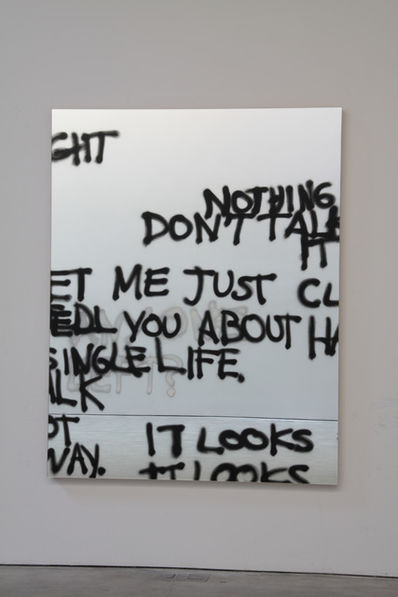 GHT
NOTHING
DON'T TALK
IT
ET ME JUST CL
EDL YOU ABOUT HA
SINGLE LIFE.
ALK
OT
WAY.
IT LOOKS
IT LOOKS